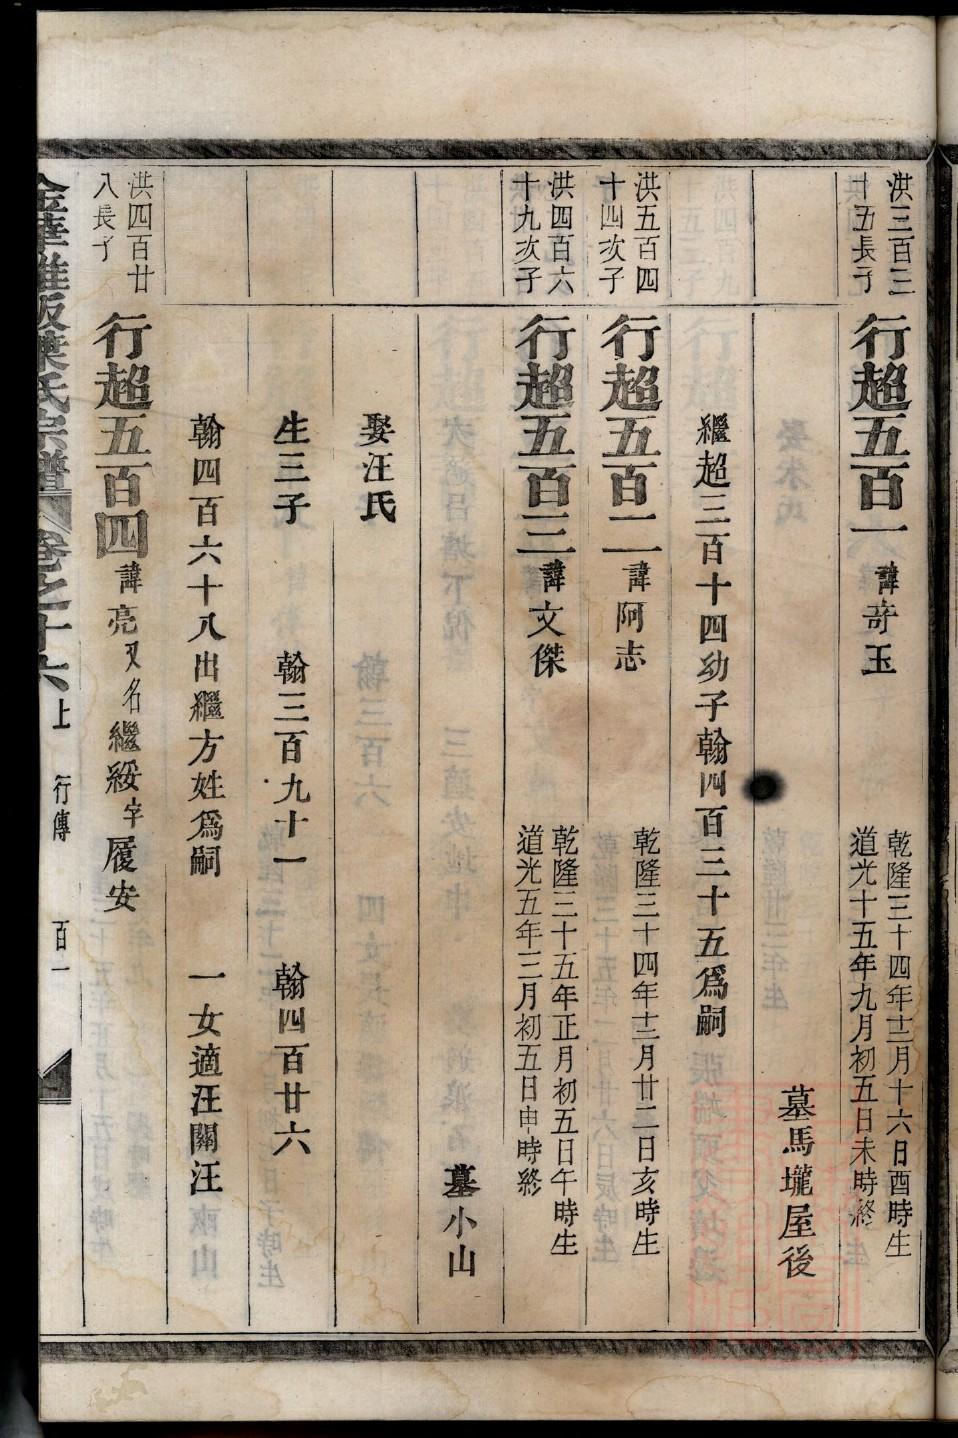 洪三百三
十五長子
行超五百一 諱奇玉 乾隆三十四年十二月十六日酉時生
道光十五年九月初五日未時終
墓馬壠屋後
繼超三百十四幼子翰四百三十五爲嗣
洪五百四
十四次子
行超五百二 諱阿志 乾隆三十四年十二月廿二日亥時生
洪四百六
十九次子
行超五百三 諱文傑 乾隆三十五年正月初五日午時生
道光五年三月初五日申時終
墓小山
娶汪氏
生三子 翰三百九十一 翰四百廿六
翰四百六十八出繼方姓爲嗣 一女適汪關汪
洪四百廿
八長子
行超五百四 諱亮又名繼綏字履安
金華 坂葉氏宗譜 卷之十六上 行傳 百一